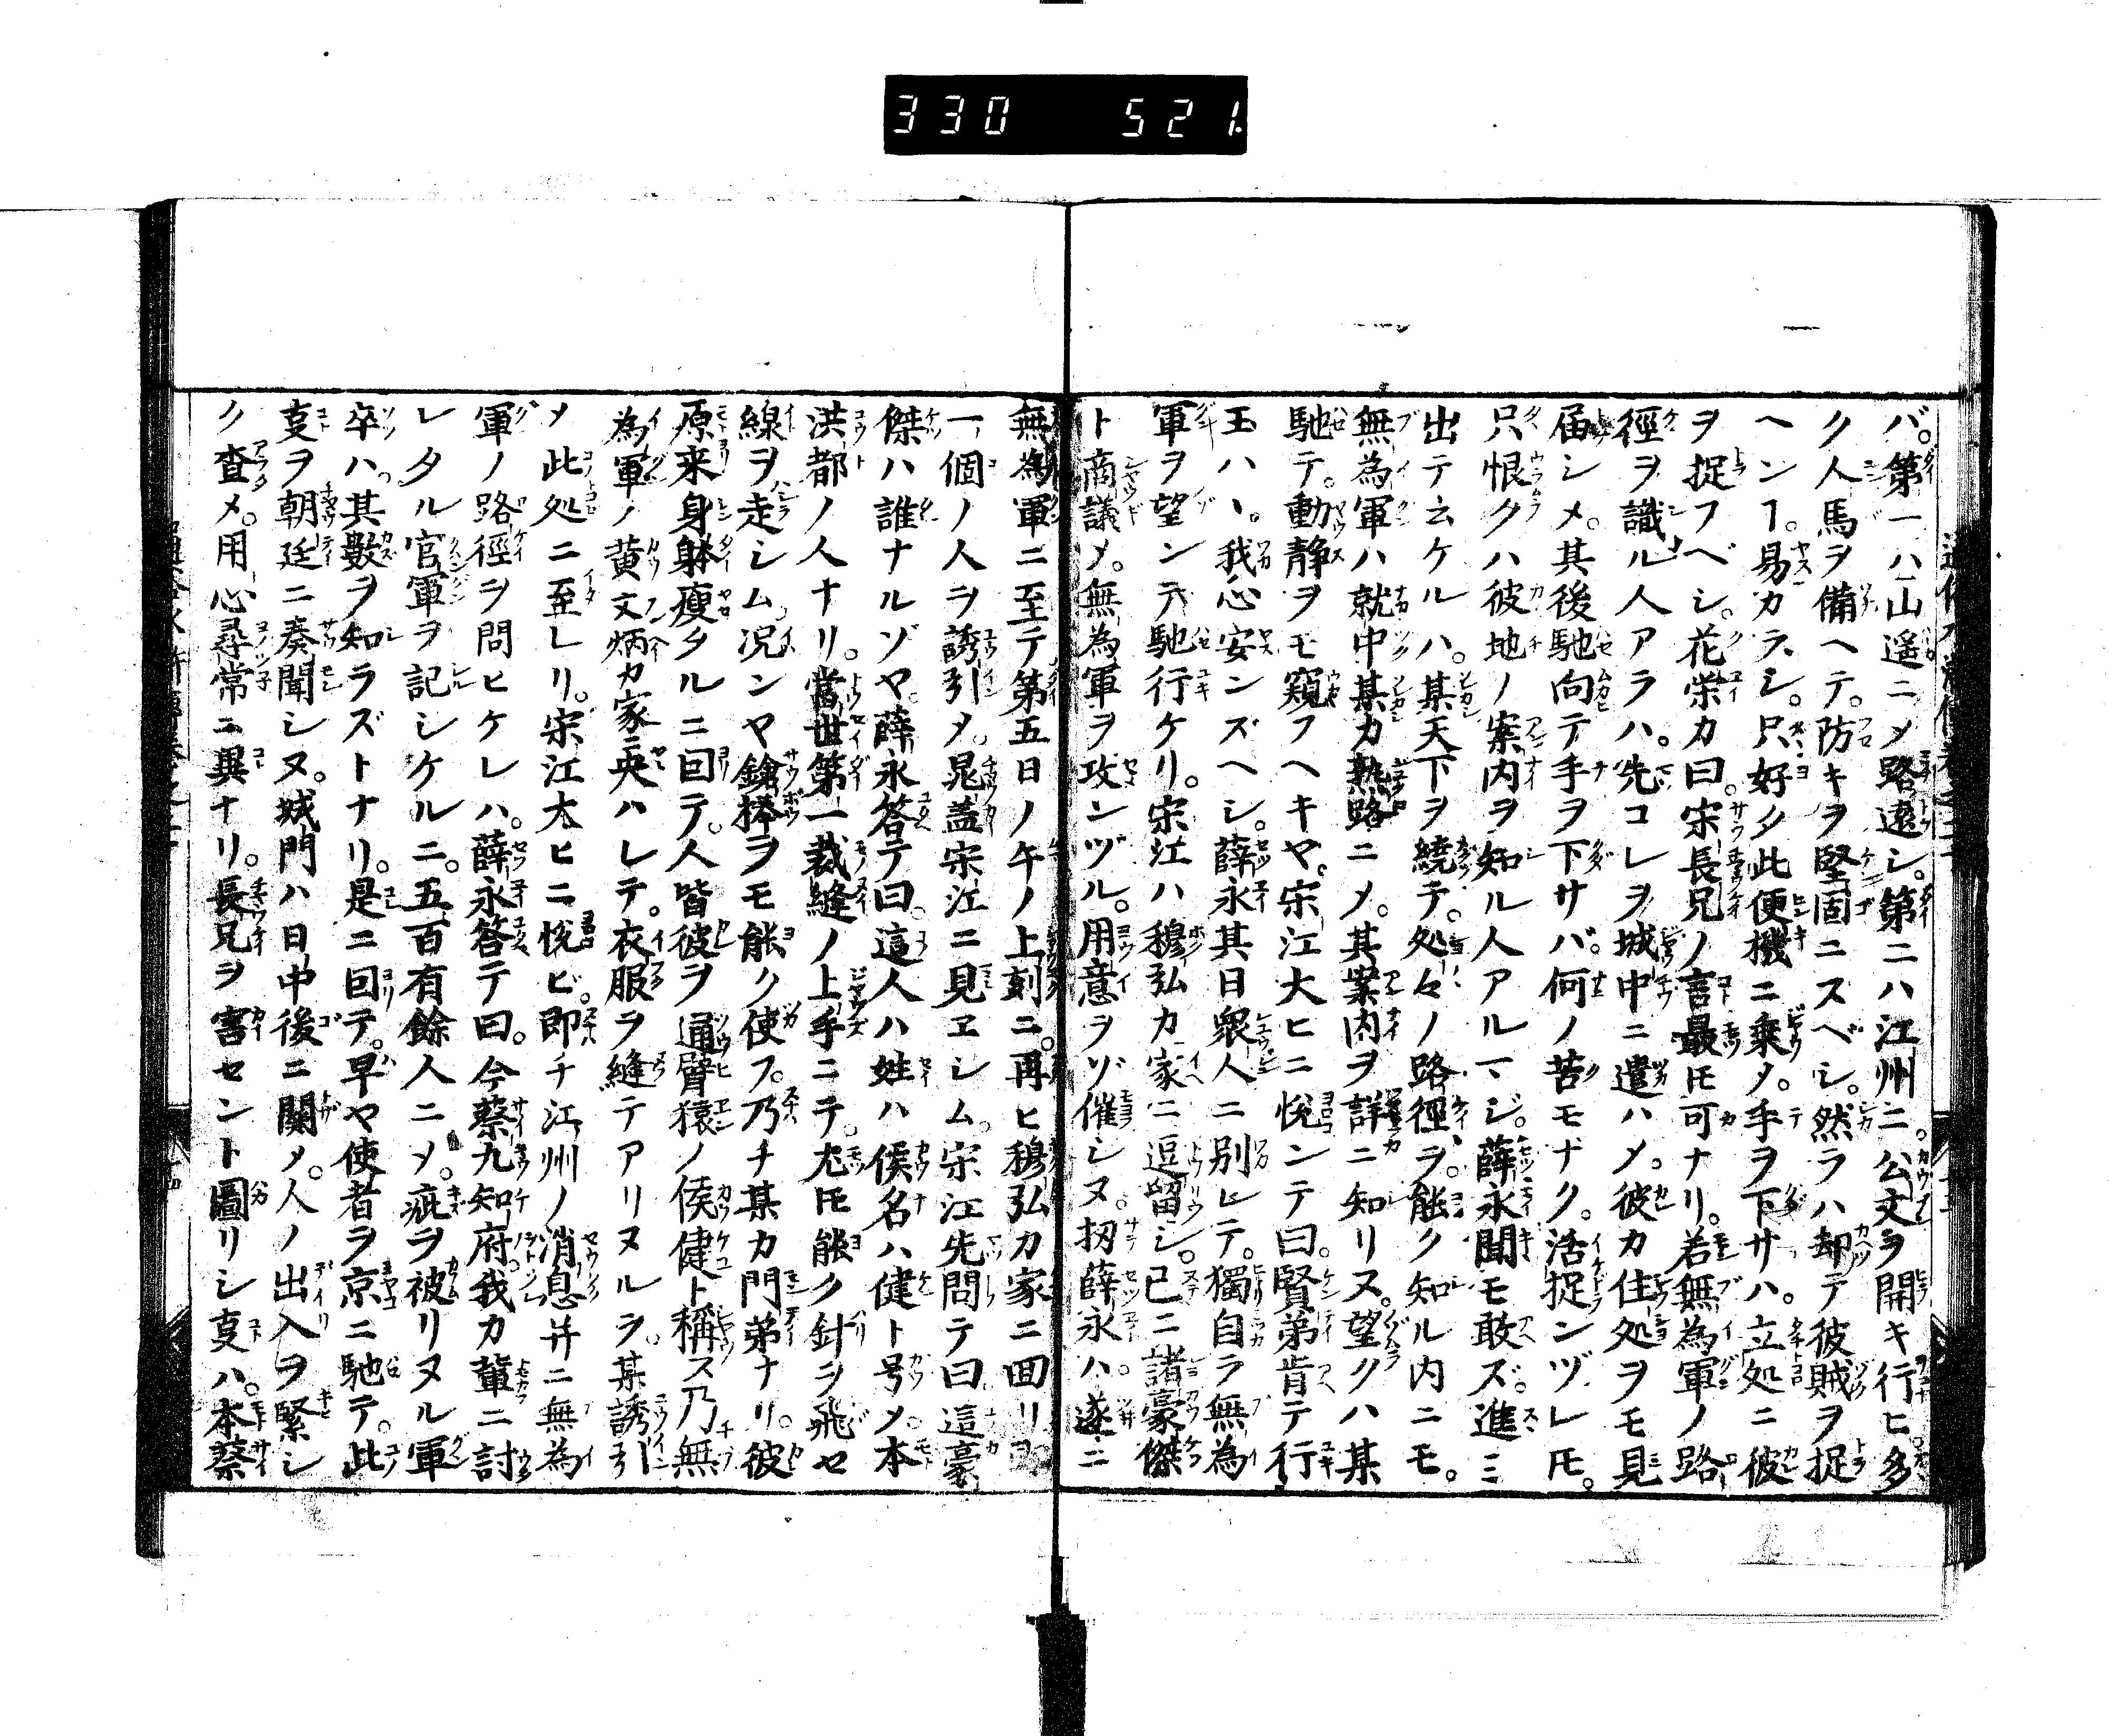 330 521.
バ。第一ハ山遥ニメ路遠シ。第二ハ江州ニ。公文ヲ開キ行ヒ。多
ク人馬ヲ備ヘテ。防キヲ堅固ニスベシ。然ラハ却テ彼賊ヲ捉
ヘンヿ。易カラシ。只好タ此便機ニ乗メ。手ヲ下サハ。立処ニ彼
ヲ捉フベシ。花栄カ曰。宋長兄ノ言最モ可ナリ。若無為軍ノ路
徑ヲ識ル人アラハ。先コレヲ城中ニ遣ハメ。彼カ住処ヲモ見
届シメ。其後馳向テ手ヲ下サバ。何ノ苦モナク。活捉ンヅレ𪜈。
只恨クハ彼地ノ案内ヲ知ル人アルマジ。薛永聞モ敢ズ。進ミ
出テ云ケルハ。某天下ヲ繞テ。処々ノ路徑ヲ。能ク知ル内ニモ。
無為軍ハ就中某カ熟路ニメ。其案内ヲ詳ニ知リヌ。望クハ某
馳テ。動静ヲモ窺フヘキヤ。宋江大ヒニ悦ンテ曰。賢弟肯テ行
玉ハヽ。我心安ンズヘシ。薛永其日衆人ニ別レテ。獨自ラ無為
軍ヲ望ンテ馳行ケリ。宋江ハ穆弘カ家ニ逗留シ。已ニ諸豪傑
ト商議メ。無為軍ヲ攻ンヅル。用意ヲゾ催シヌ。扨薛永ハ。遂ニ
無為軍ニ至テ第五日ノ午ノ上刻ニ。再ヒ穆弘カ家ニ回リ
一個ノ人ヲ誘引メ。晁蓋宋江ニ見ヱシム。宋江先問テ曰這豪
傑ハ誰ナルゾヤ。薛永答テ曰。這人ハ姓ハ侯名ハ健ト号メ。本
洪都ノ人ナリ。當世第一裁縫ノ上手ニテ。尤𪜈能ク針ヲ飛セ
線ヲ走シム。况ンヤ鎗棒ヲモ能ク使フ。乃チ某カ門弟ナリ。彼
原来身躰瘦タルニ回テ。人皆彼ヲ通臂猿ノ侯健ト稱ス乃無
為軍ノ黄文炳カ家ニ央ハレテ。衣服ヲ縫テアリヌルヲ。某誘引
メ此処ニ至レリ。宋江大ヒニ悦ビ。即チ江州ノ消息并ニ無為
軍ノ路徑ヲ問ヒケレハ。薛永答テ曰。今蔡九知府。我カ輩ニ討
レタル官軍ヲ記シケルニ。五百有餘人ニメ。疵ヲ被リヌル軍
卒ハ。其數ヲ知ラズトナリ。是ニ回テ。早ヤ使者ヲ京ニ馳テ。此
叓ヲ朝廷ニ奏聞シヌ。城門ハ日中後ニ關メ。人ノ出入ヲ緊シ
ク査メ。用心尋常ニ異ナリ。長兄ヲ害セント圖リシ叓ハ。本蔡